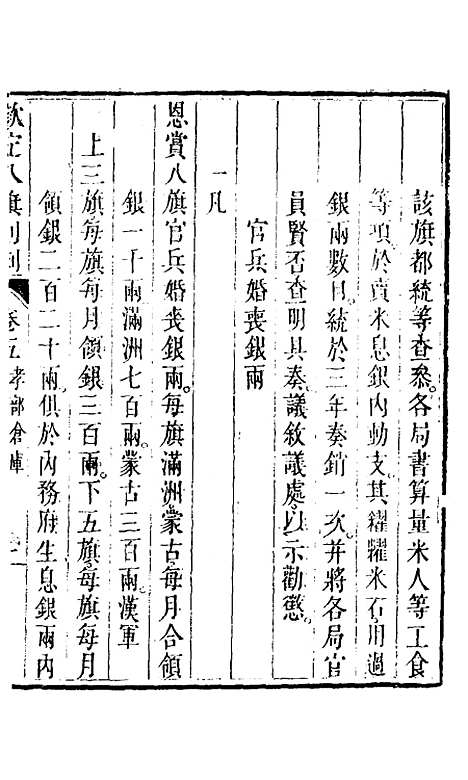 該旗都統等查叅。各局書算量米人等工食
等項於賣米息銀內動支。其糴糶米石用過
銀兩數目。統於三年奏銷一次。并將各局官
員賢否查明具奏。議敘議處。以示勸懲。
官兵婚喪銀兩
一凡
恩賞八旗官兵婚喪銀兩。每旗滿洲蒙古每月合領
銀一千兩滿洲七百兩。蒙古三百兩。漢軍
上三旗每旗每月領銀三百兩。下五旗每旗每月
領銀二百二十兩。俱於內務府生息銀兩內
欽定八旗則例 卷五孝部倉庫